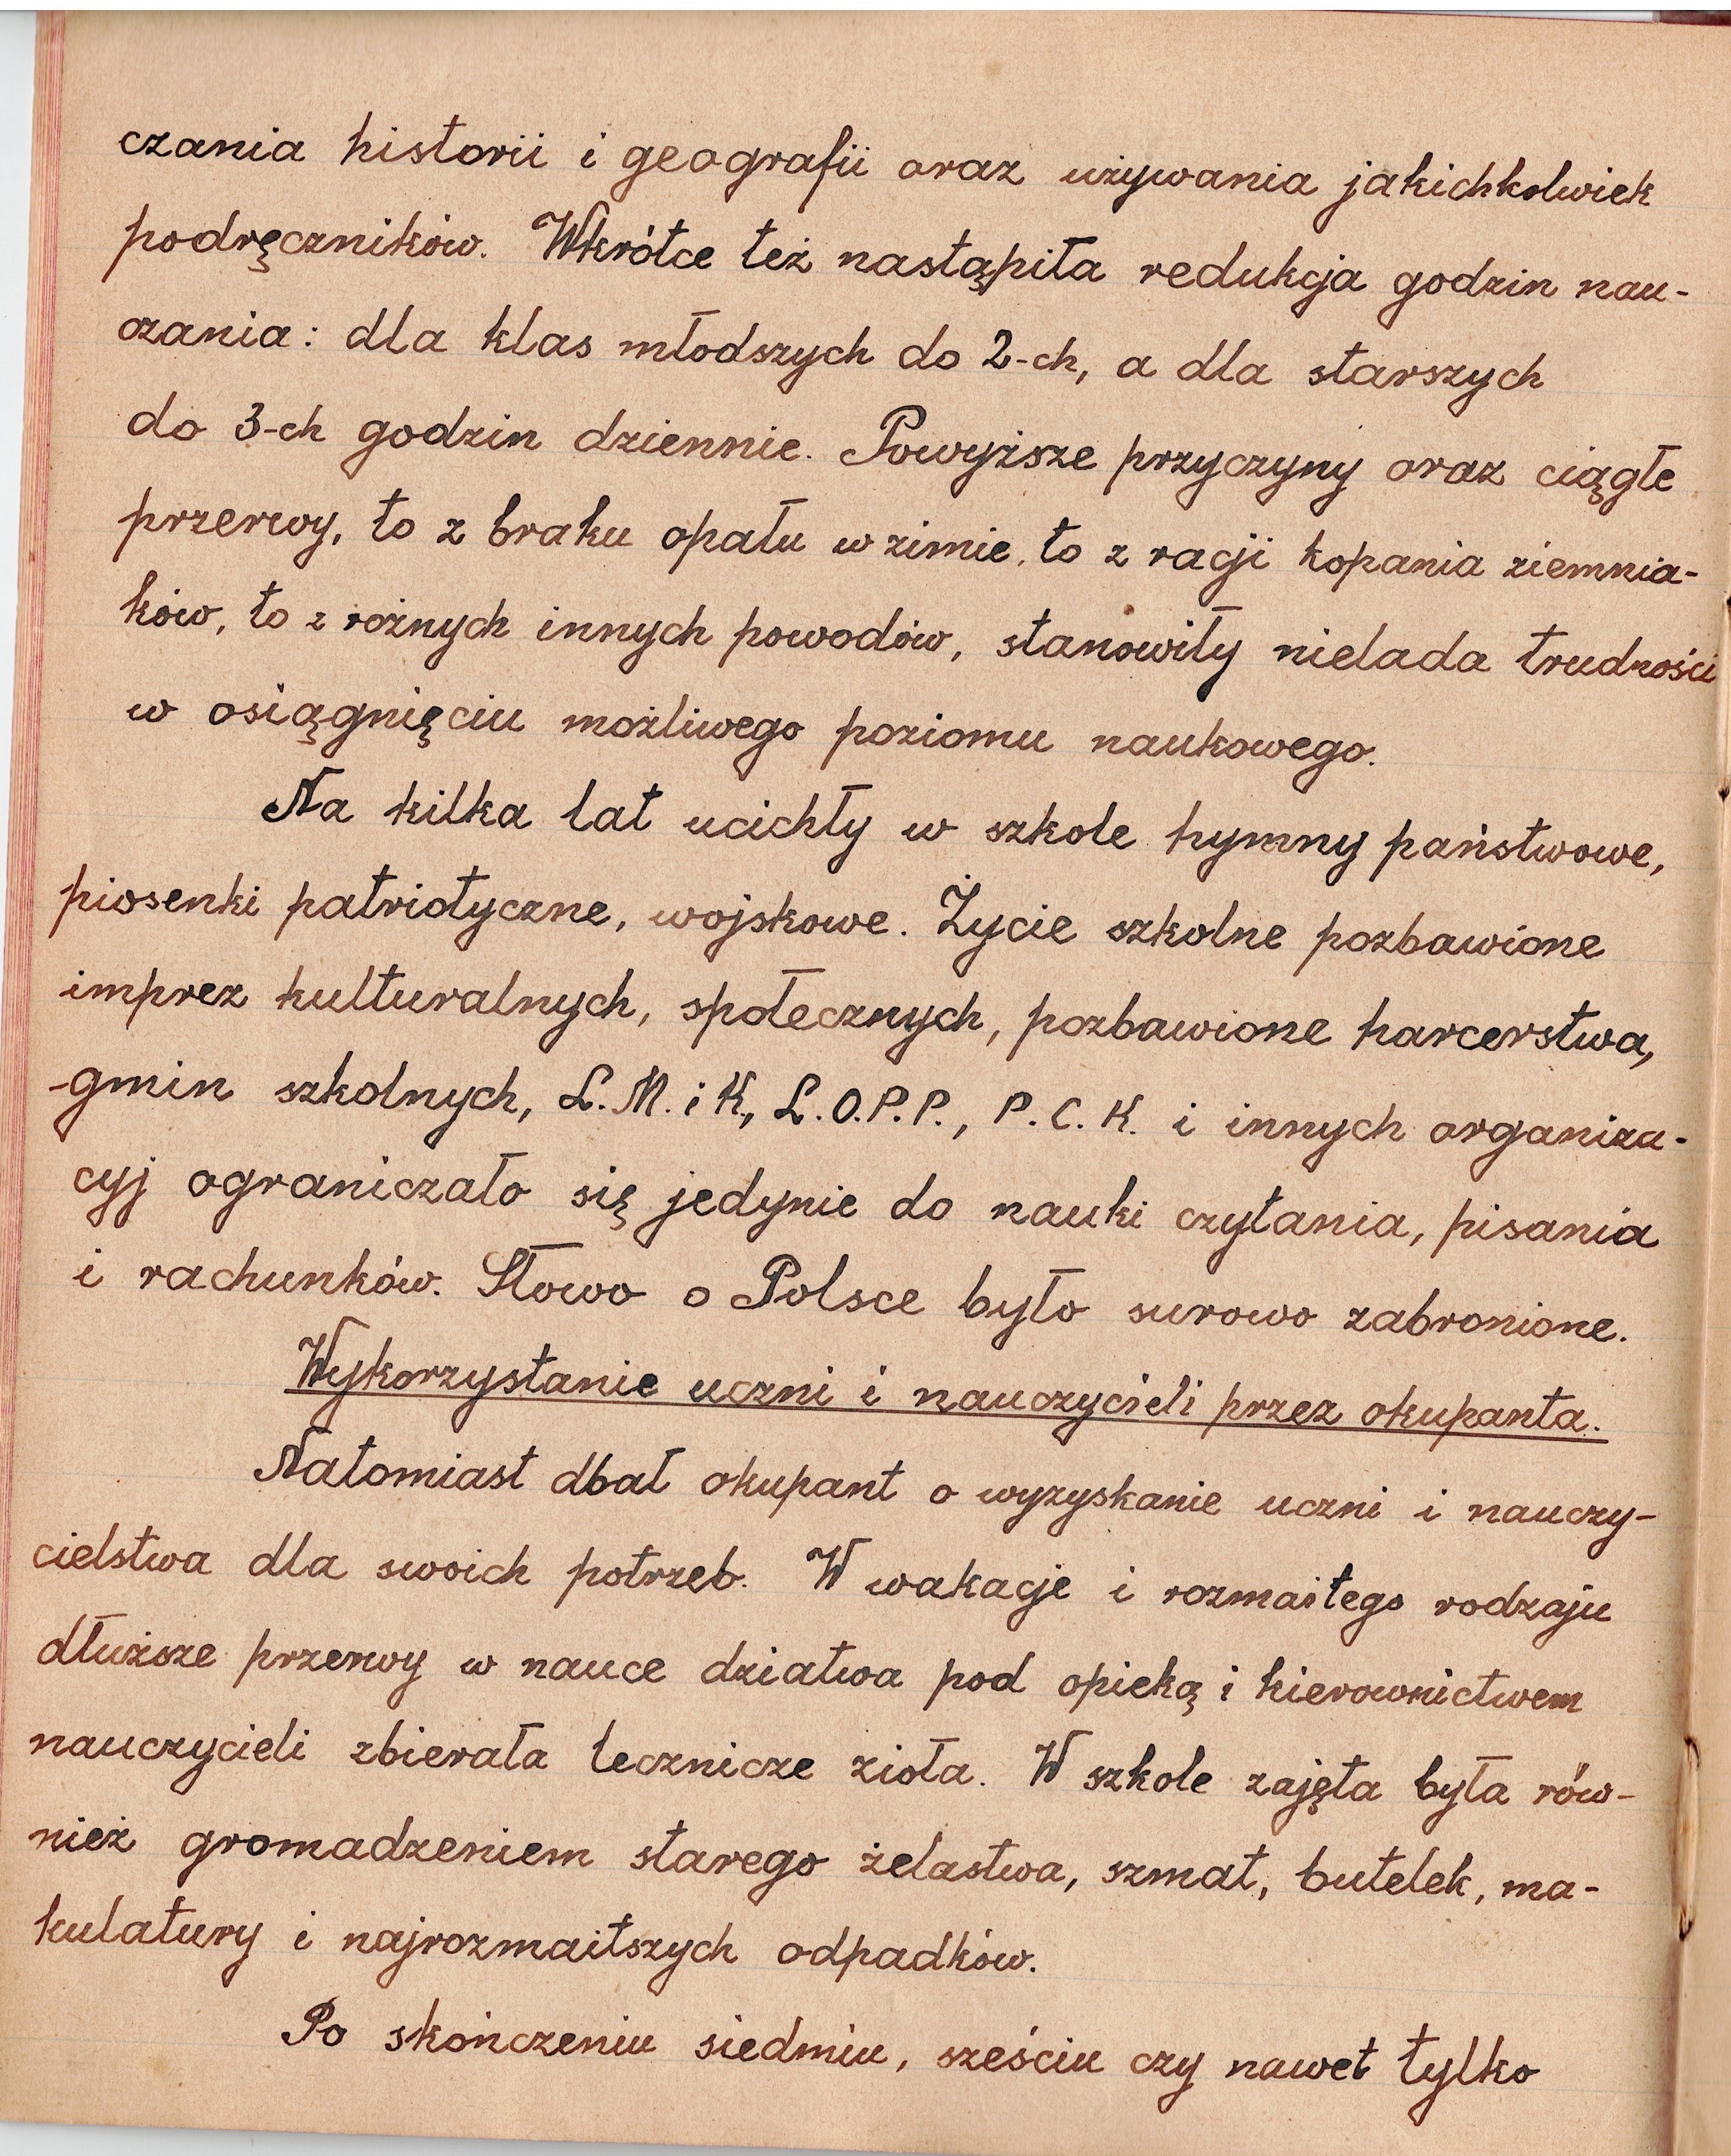 czania historii i geografii oraz używania jakichkolwiek
podręczników. Wkrótce też nastąpiła redukcja godzin nau-
czania: dla klas młodszych do 2-ch, a dla starszych
do 3-ch godzin dziennie. Powyższe przyczyny oraz ciągłe
przerwy, to z braku opału w zimie, to z racji kopania ziemnia-
ków, to z różnych innych powodów, stanowiły nielada trudności
w osiągnięciu możliwego poziomu naukowego.
Na kilka lat ucichły w szkole hymny państwowe,
piosenki patriotyczne, wojskowe. Życie szkolne pozbawione
imprez kulturalnych, społecznych, pozbawione harcerstwa,
-gmin szkolnych, L.M. i K, L.O.P.P., P.C.K. i innych organiza-
cyj ograniczało się jedynie do nauki czytania, pisania
i rachunków. Słowo o Polsce było surowo zabronione.
Wykorzystanie uczni i nauczycieli przez okupanta.
Natomiast dbał okupant o wyzyskanie uczni i nauczy-
cielstwa dla swoich potrzeb. W wakacje i rozmaitego rodzaju
dłuższe przerwy w nauce dziatwa pod opieką i kierownictwem
nauczycieli zbierała lecznicze zioła. W szkole zajęta była rów-
nież gromadzeniem starego żelastwa, szmat, butelek, ma-
kulatury i najrozmaitszych odpadków.
Po skończeniu siedmiu, sześciu czy nawet tylko